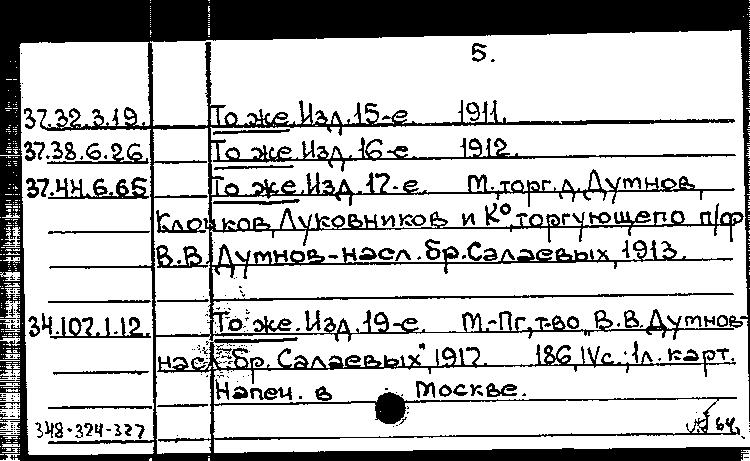 5.
37.32.3.19. То же. Изд. 15-е. 1911.
37.38.6.26. То же. Изд. 16-е. 1912.
37.44.6.65 То же. Изд. 17-е. М., торг. д. Думнов,
Клочков, Луковников и К°, торгующего п/ф
В.В. Думнов-насл. бр. Салаевых, 1913.
34.107.1.12. То же. Изд. 19-е. М.-Пг., т-во "В.В. Думнов-
насл. бр. Салаевых", 1917. 186, IV с.; 1 л. карт.
Напеч. в Москве.
348-324-327 64.